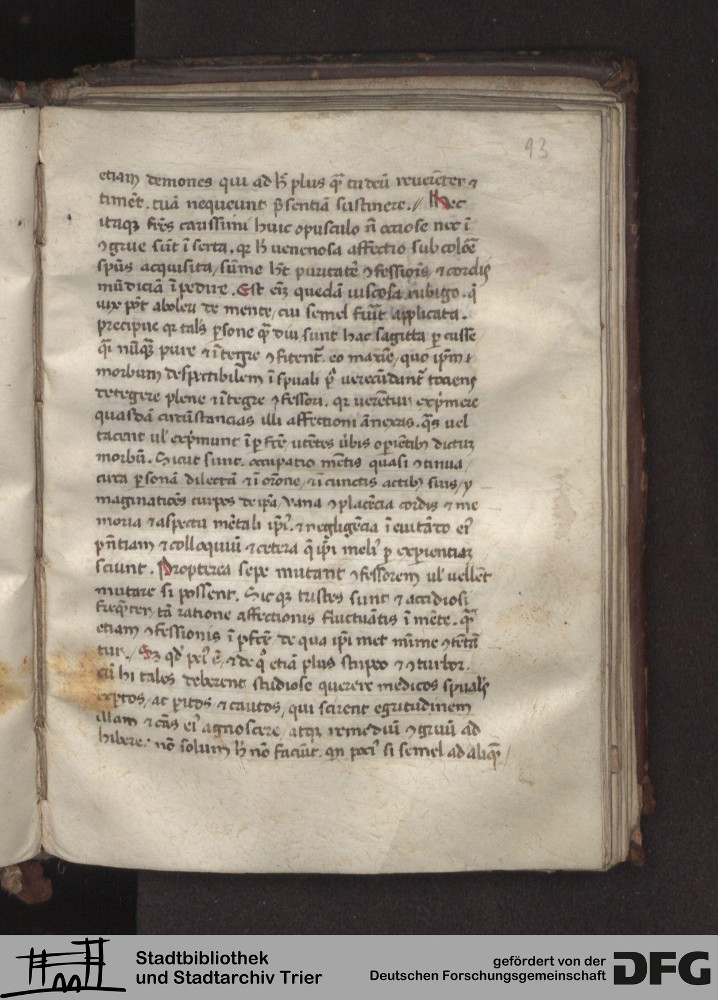 93
etiam demones qui ad hͦ plus qᷓ tu deū reverent̄er ⁊
timēt. tuā nequeunt p̄sentiā sustinere. // Hec
itaqꝫ frēs carissimi huic opusculo nͦ occiose nec ī
ꝯgrue sūt īserta. qꝛ hͦ venenosa affectio sub colōe
spūs acquisita / sūme hꝫt puritatē ꝯfessiōis ⁊ cordis
mūdiciā īpedire. Est em̄ quedā viscosa rubigo. q̄
vix pōt aboleri de mente / cui semel fuīt applicata.
precipue qꝛ tales ꝑsone qᷓ diu sunt hac sagitta ꝑcusse
qͥ nūqᷓ pure ⁊ ītegre ꝯfitent᷑. eo maxīe / quo ip̄m
morbum despectibilem ī spūali verecūdant᷑ tociens
detegere plene ⁊ ītegre ꝯfessori. qꝛ verentur exprͥmere
quasdā circūstancias illi affectioni ānexas. qᷓs vel
tacent ul̓ exprͥmunt
morbū. Sicut sunt. occupatio mētis quasi ꝯtinua /
cura ꝑsonā dilectā ⁊ ī orōne / ⁊ ī cunctis actibꝫ suis / y
maginatiōes turpes de ip̄a / vana ⁊ ꝯplacēcia cordis ⁊ me
moria ⁊ aspectu mētali ip̄i᷒. ⁊ negligēcia ī euitādo ei᷒
pn̄tiam ⁊ colloquiū ⁊ cetera q̄ ip̄i meli᷒ ꝑ experientiaꝫ
sciunt. Propterea sepe mutant ꝯfessorem ul̓ vellēt
mutare si possent. Sicqꝫ tristes sunt ⁊ accidiosi
frequēter tā ratione affectionis fluctuātis ī mēte. qᷓ
etiam ꝯfessionis īpfcē de qua ip̄i met mīme ꝯtētā
tur. / Sꝫ qd̓ pei᷒ ē / ⁊ de qͦ etiā plus stupeo ⁊ ꝯturbor.
cū hi tales deberent studiose querere medicos spūales
exꝑtos / ac ꝑitos ⁊ cautos / qui scirent egritudinem
illam ⁊ cās ei᷒ agnoscere / atqꝫ remediū ꝯgruū ad
hibere. nō solum hͦ nō faciūt. qn poci᷒ si semel ad aliquē /
Stadtbibliothek
und Stadtarchiv Trier
gefördert von der
Deutschen Forschungsgemeinschaft
DFG